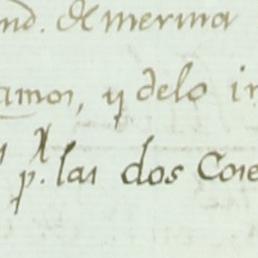 nd. de merina
amos, y delo in
p. las dos Core